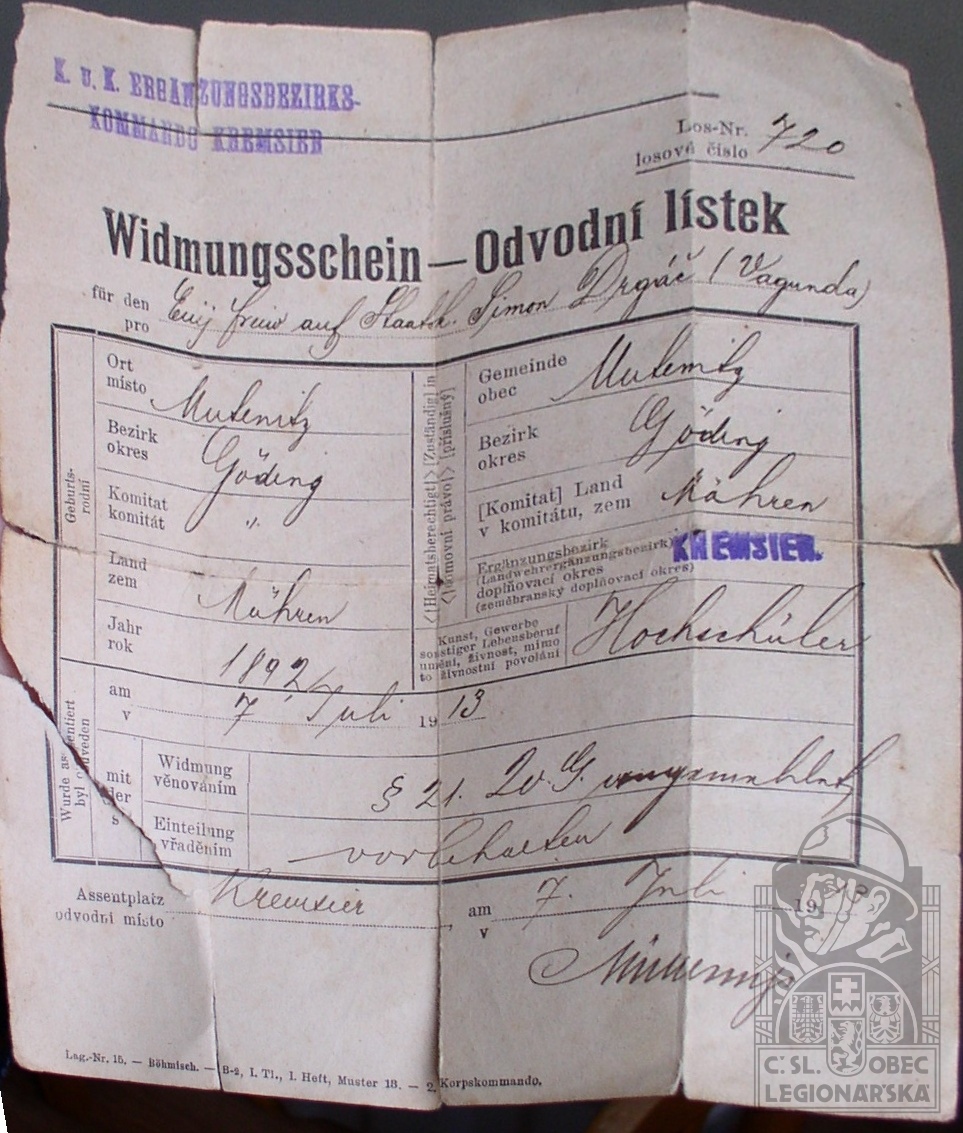 K. u. K. ERGÄNZUNGSBEZIRKS-
KOMMANDO KREMSIER
Los-Nr. 720
losové číslo
Widmungsschein — Odvodní lístek
für den
pro
Einj freiw auf Staatsk. Simon Drgáč (Vagunda)
Geburts-
rodní
Ort
místo
Mutenitz
Bezirk
okres
Göding
Komitat
komitát
"
Land
zem
Mähren
Jahr
rok
1892
[Heimatsberechtigt] [Zuständig] in
[domovní právo] [příslušný]
Gemeinde
obec
Mutenitz
Bezirk
okres
Göding
[Komitat] Land
v komitátu, zem
Mähren
Ergänzungsbezirk
(Landwehrergänzungsbezirk)
doplňovací okres
(zeměbranský doplňovací okres)
KREMSIER.
Kunst, Gewerbe
sonstiger Lebensberuf
umění, živnost, mimo
to živnostní povolání
Hochschüler
Wurde assentiert
byl odveden
am
v
7 Juli 1913
mit
der
s
Widmung
věnováním
§ 21. W. G.
Einteilung
vřaděním
vorbehalten
Assentplatz
odvodní místo
Kremsier
am
v
7. Juli 19
Lag.-Nr. 15. — Böhmisch. — B-2, I. Tl., I. Heft, Muster 18. — 2. Korpskommando.
Č SL. OBEC
LEGIONÁŘSKÁ